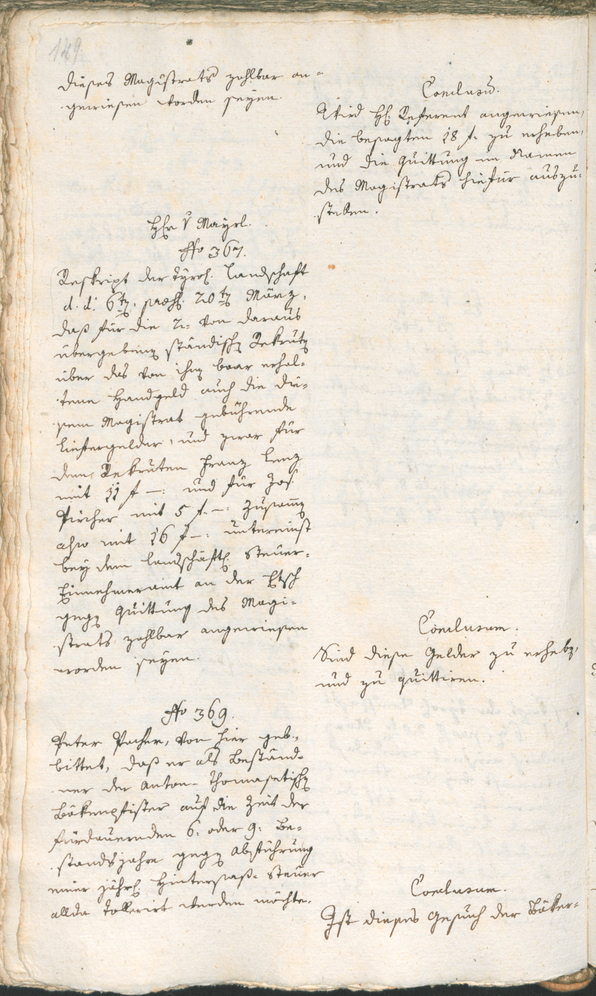 149.
dieses Magistrats zahlbar an-
gewiesen worden seyen.
Conclusum.
Wird H: Referent angewiesen,
die besagten 18 f. zu erheben,
und die Quittung im Namen
des Magistrats hiefür auszu-
stellen.
Hr v Mayrl.
No 367.
Reskript der tyrol. Landschaft
d. d: 6ten, praes. 20ten März,
daß für die 2. von daraus
übergebene ständische Rekruten
über das von ihnen baar erhal-
tene Handgeld auch die die-
sem Magistrat gebührende
Liefergelder, und zwar für
den Rekruten Franz Lenz
mit 11 f –: und für Jos:
Pircher mit 5 f. –: zusammen
also mit 16 f –: untereinst
bey dem landschäftl. Steuer-
Einnehmeramt an der Etsch
gegen Quittung des Magi-
strats zahlbar angewiesen
worden seyen.
Conclusum.
Sind diese Gelder zu erheben,
und zu quittiren.
No 369.
Peter Pacher, von hier geb.
bittet, daß er als Beständ-
ner der Anton- Thomasetischen
Bäkenpfister auf die Zeit der
fürdauernden 6. oder 9: Be-
standsjahre gegen Abführung
einer jährl. Hintersaß- Steuer
allda tollerirt werden möchte.
Conclusum.
Ist dieses Gesuch der Bäker-